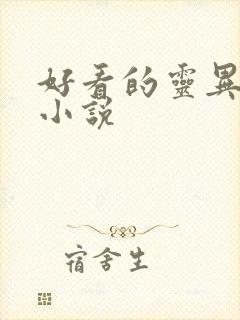 好看的靈異
小說
宿舍生